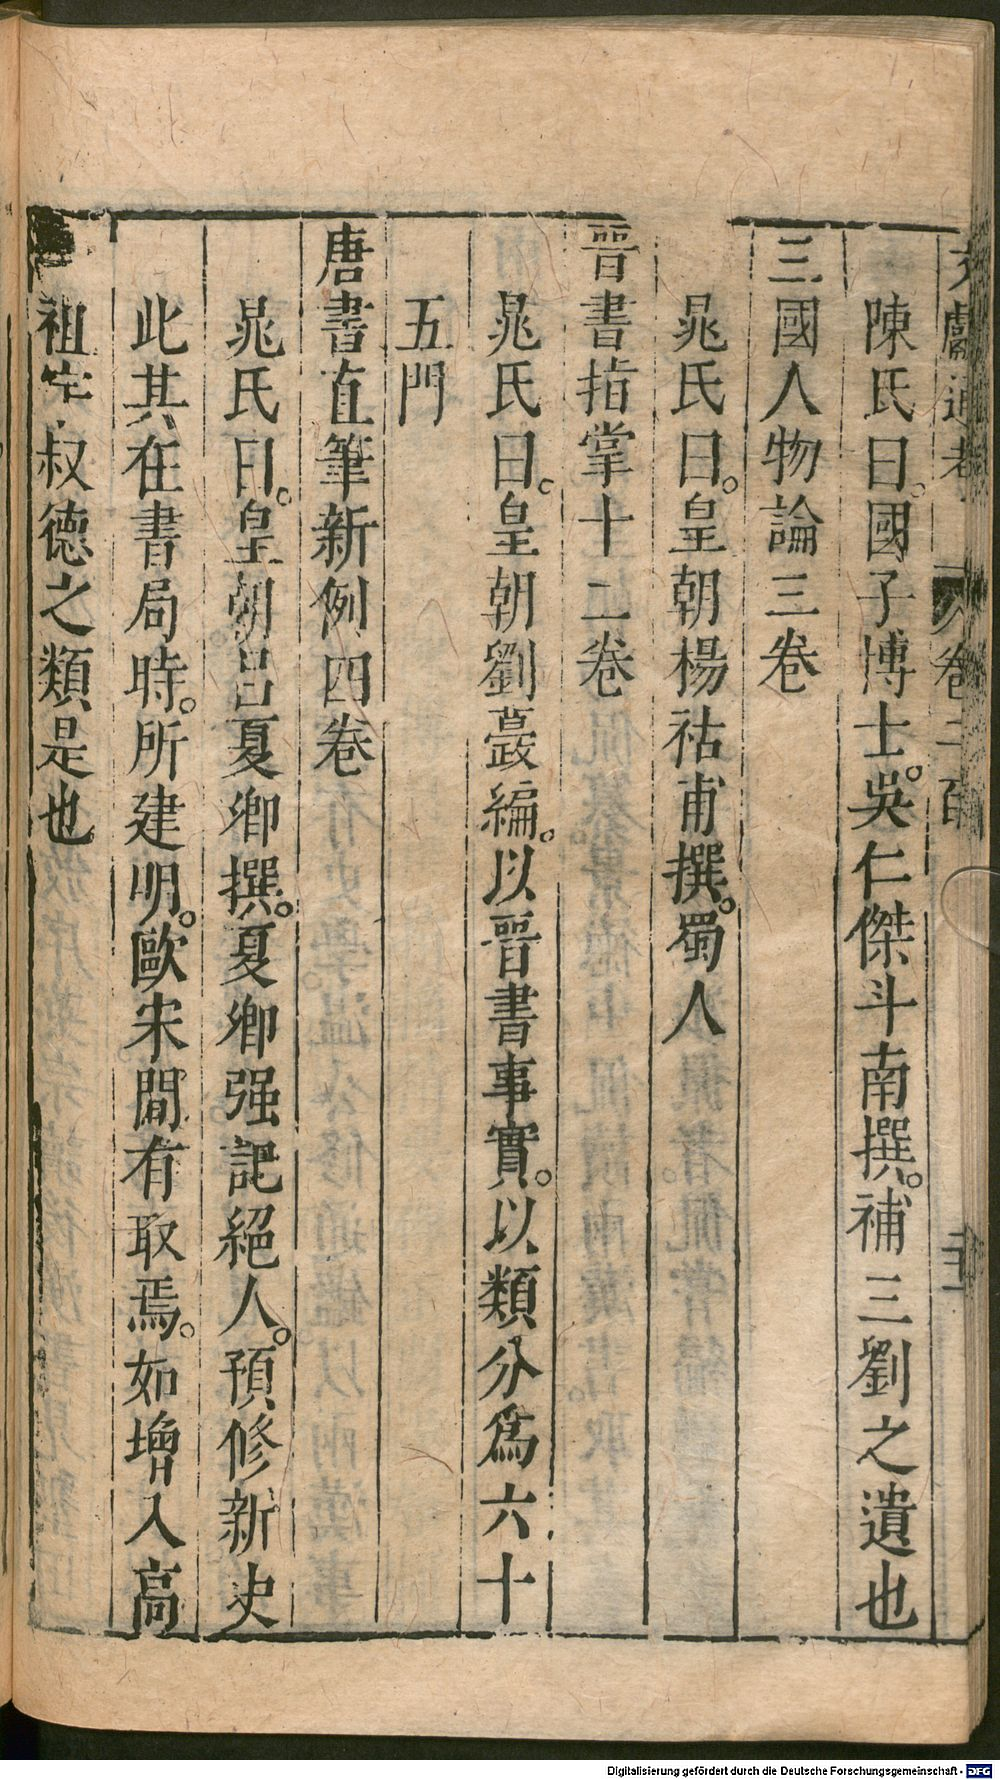 文獻通考 卷二百
陳氏曰。國子博士。吳仁傑斗南撰。補三劉之遺也
三國人物論三卷
晁氏曰。皇朝楊祜甫撰。蜀人
晉書指掌十二卷
晁氏曰。皇朝劉蕆編。以晉書事實。以類分爲六十
五門
唐書直筆新例四卷
晁氏曰。皇朝呂夏卿撰。夏卿强記絕人。預修新史
此其在書局時。所建明。歐宋間有取焉。如增入高
祖字叔德之類是也
Digitalisierung gefördert durch die Deutsche Forschungsgemeinschaft - DFG